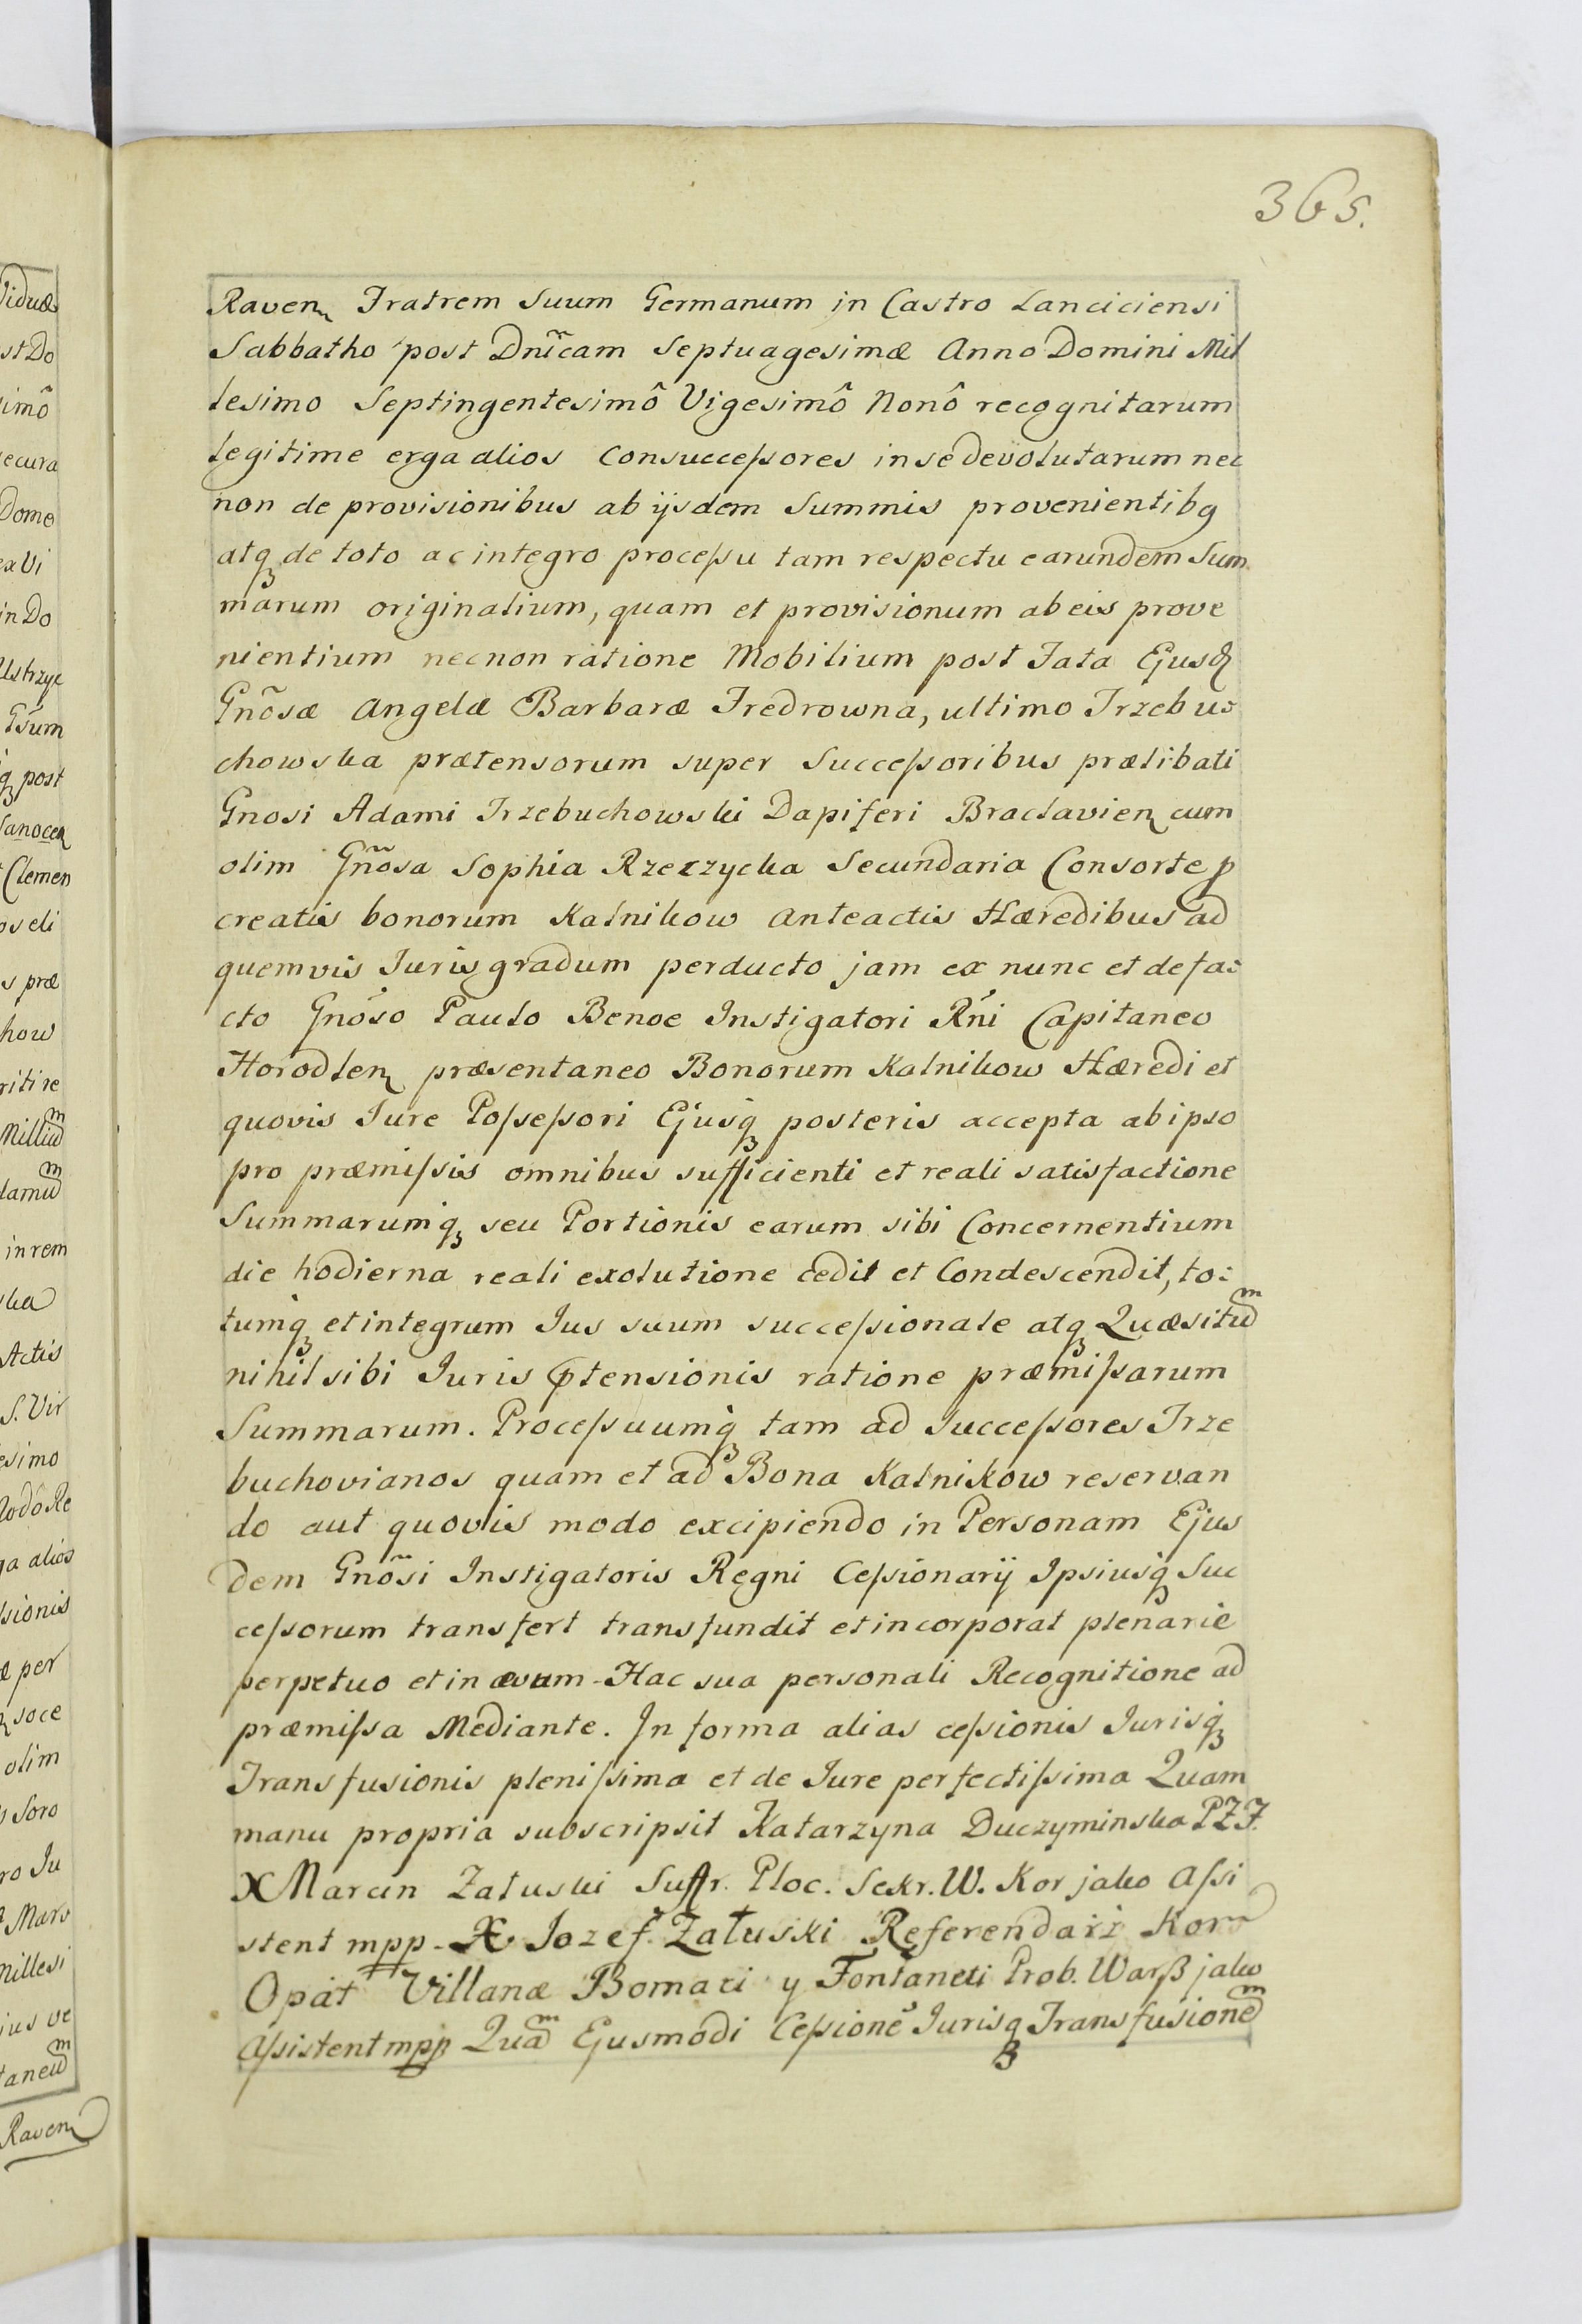 365.
Raven Fratrem Suum Germanum in Castro Lanciciensi
Sabbatho post Dnĩcam Septuagesimæ Anno Domini Mil
lesimo Septingentesimô Vigesimô Nonô recognitarum
legitime erga alios Consuccessores in se devolutarum nec
non de provisionibus ab ijsdem Summis provenientibq
atq de toto ac integro processu tam respectu earundem Sum
marum originalium, quam et provisionum ab eis prove
nientium necnon ratione Mobilium post Fata Ejusd
Gnõsæ Angelæ Barbaræ Fredrowna, ultimo Trzebu=
chowska prætensorum super Successoribus prælibati
Gnosi Adami Trzebuchowski Dapiferi Braclavien cum
olim Gnõsa Sophia Rzeczycka Secundaria Consorte p
creatis bonorum Kalnikow anteactis Hæredibus ad
quemvis Juris gradum perducto jam ex nunc et de fa=
cto Gnõso Paulo Benoe Instigatori Rńi Capitaneo
Horodlen præsentaneo Bonorum Kalnikow Hæredi et
quovis Jure Possessori Ejusq posteris accepta ab ipso
pro præmissis omnibus sufficienti et reali satisfactione
Summarumq seu Portionis earum sibi Concernentium
die hodierna reali exolutione cedit et Condescendit, to=
tumq et integrum Jus suum successionale atq Quæsitum
nihil sibi Juris ptensionis ratione præmissarum
Summarum. Processuumq tam ad Successores Trze
buchovianos quam et ad Bona Kalnikow reservan
do aut quovis modo excipiendo in Personam Ejus
dem Gnõsi Instigatoris Regni Cessionarij Ipsiusq Suc
cessorum transfert transfundit et incorporat plenarie
perpetuo et in ævum - Hac sua personali Recognitione ad
præmissa Mediante. In forma alias cessionis Jurisq
Transfusionis plenissima et de Jure perfectissima Quam
manu propria subscripsit Katarzyna Duczyminska PZF.
X Marcin Zaluski Suffr. Ploc. Sekr. W. Kor jako Assi
stent mpp - X Jozef Załuski Referendarż Kor
Opát Villanæ Bomari y Fontaneti Prob. Warß jako
Assistent mpp Quam Ejusmodi Cessionē Jurisq Transfusionem